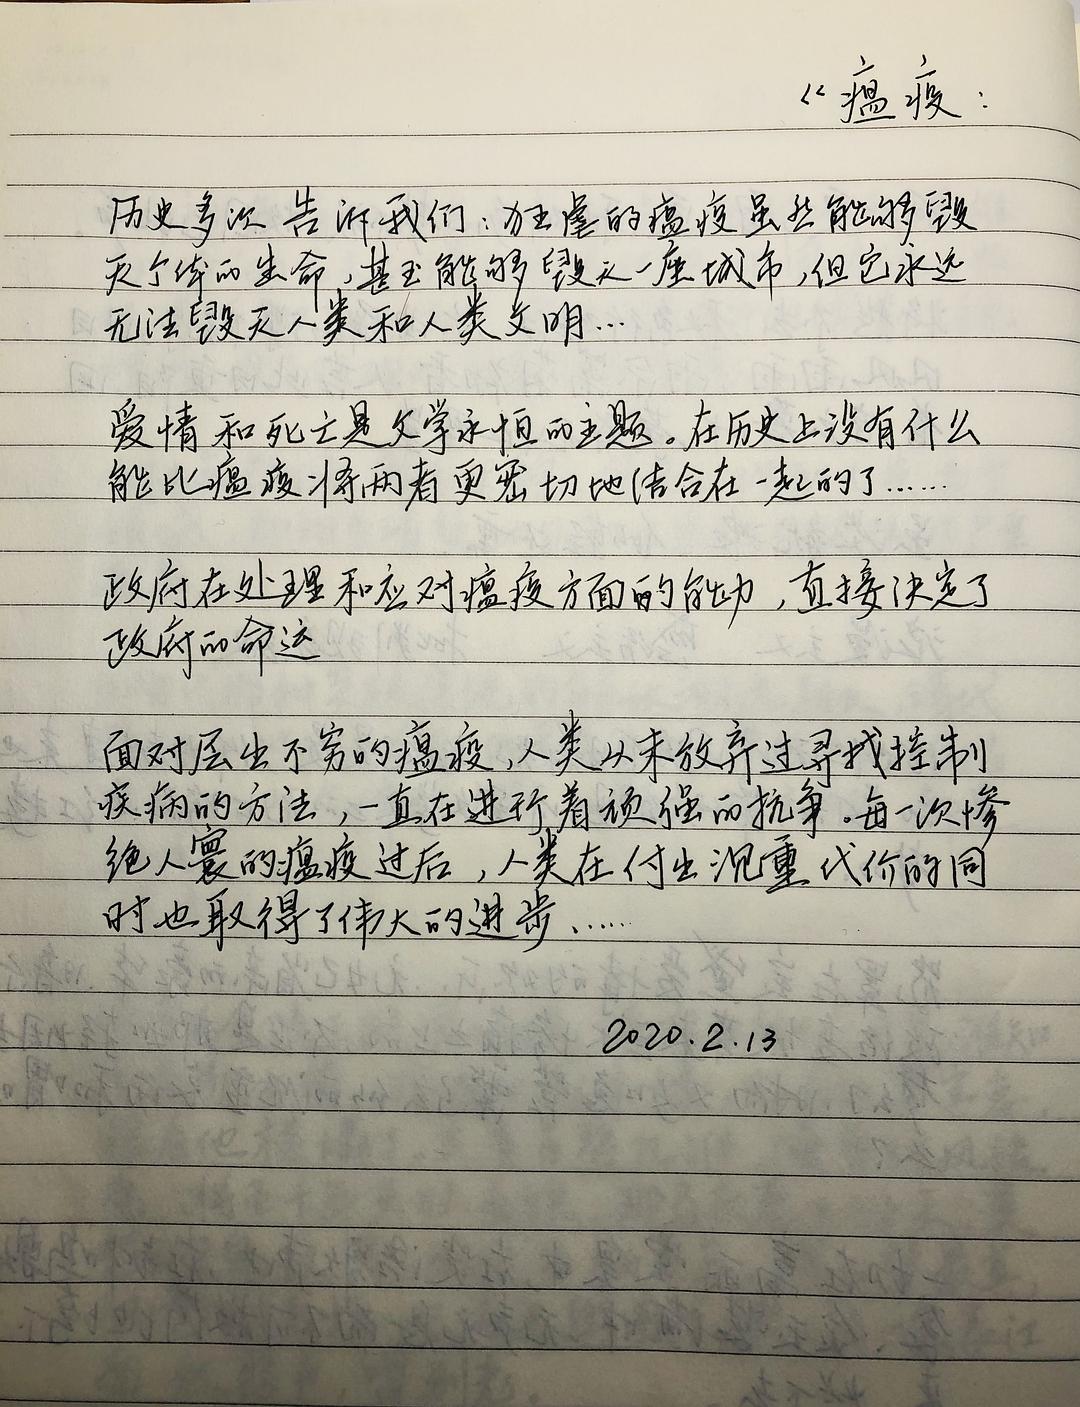 《瘟疫：
历史多次告诉我们：狂虐的瘟疫虽然能够毁
灭个体的生命，甚至能够毁灭一座城市，但它永远
无法毁灭人类和人类文明…
爱情和死亡是文学永恒的主题。在历史上没有什么
能比瘟疫将两者更密切地结合在一起的了……
政府在处理和应对瘟疫方面的能力，直接决定了
政府的命运
面对层出不穷的瘟疫，人类从未放弃过寻找控制
疾病的方法，一直在进行着顽强的抗争。每一次惨
绝人寰的瘟疫过后，人类在付出沉重代价的同
时也取得了伟大的进步……
2020.2.13